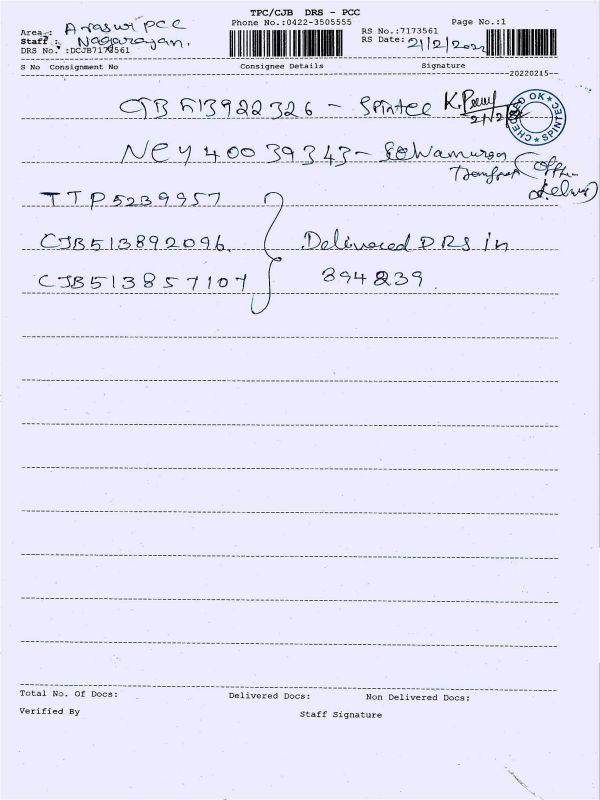 TPC/CJB DRS - PCC
Phone No.:0422-3505555
Page No.:1
Area : Arasur PCC
Staff : Nagarajan.
DRS No. :DCJB7173561
RS No.:7173561
RS Date: 21/2/2022
S No Consignment No Consignee Details Signature
20220215
CJB 513922326 - Spintec
21/2/22
CHECKED OK * SPINTEC *
NEY 40039343 -
TTP5239957
CJB513892096.
CJB513857107
Delivered DRS in
394239.
Total No. Of Docs: Delivered Docs: Non Delivered Docs:
Verified By Staff Signature